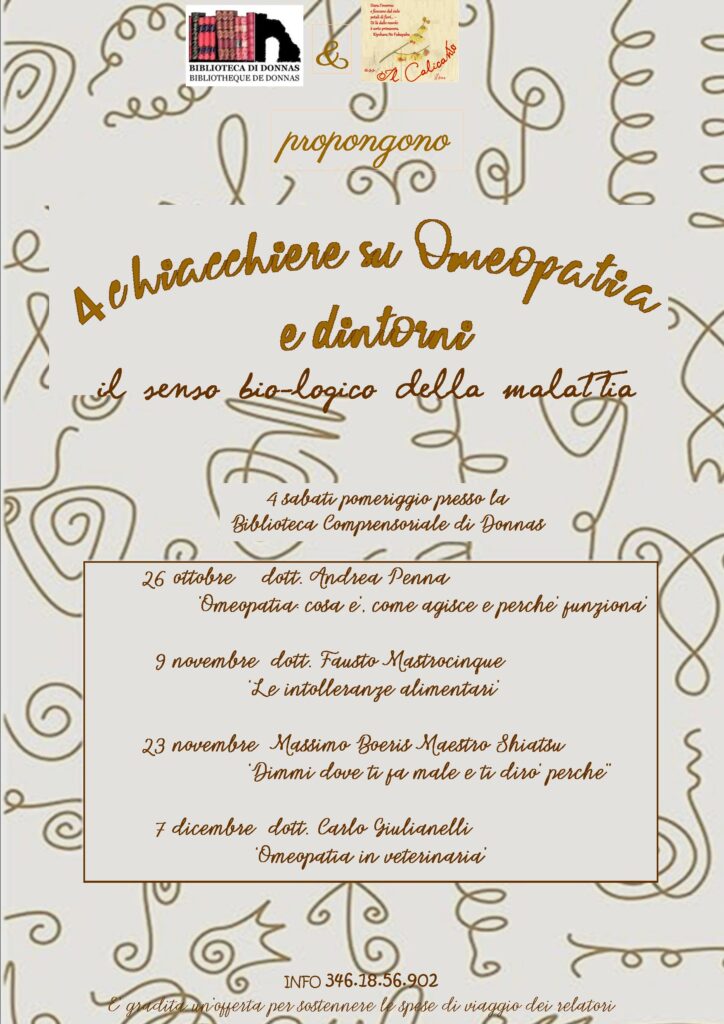 BIBLIOTECA DI DONNAS
BIBLIOTHEQUE DE DONNAS
&
e fioccano dal cielo
petali di fiori...
Di là dalle nuvole
è certo primavera.
Il Calicanto
propongono
4 chiacchiere su Omeopatia
e dintorni
il senso bio-logico della malattia
4 sabati pomeriggio presso la
Biblioteca Comprensoriale di Donnas
26 ottobre dott. Andrea Penna
'Omeopatia: cosa e', come agisce e perche' funziona'
9 novembre dott. Fausto Mastrocinque
'Le intolleranze alimentari'
23 novembre Massimo Boeris Maestro Shiatsu
'Dimmi dove ti fa male e ti diro' perche''
7 dicembre dott. Carlo Giulianelli
'Omeopatia in veterinaria'
INFO 346.18.56.902
E' gradita un'offerta per sostennere le spese di viaggio dei relatori